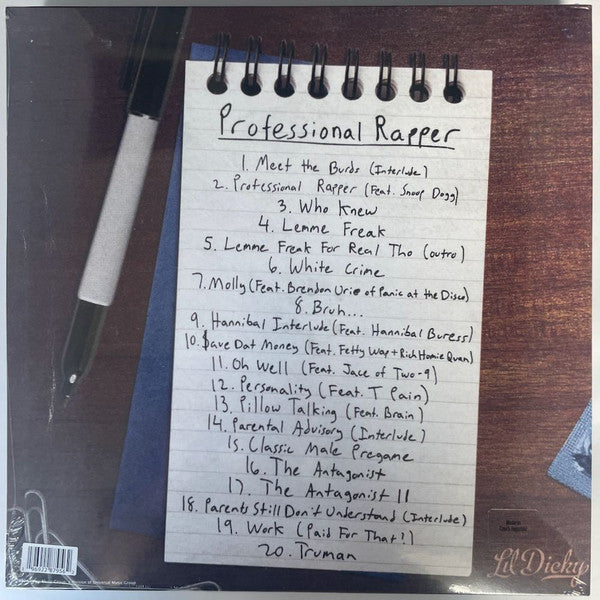 Professional Rapper
1. Meet the Burds (Interlude)
2. Professional Rapper (Feat. Snoop Dogg)
3. Who Knew
4. Lemme Freak
5. Lemme Freak For Real Tho (outro)
6. White Crime
7. Molly (Feat. Brendon Urie of Panic at the Disco)
8. Bruh...
9. Hannibal Interlude (Feat. Hannibal Buress)
10. $ave Dat Money (Feat. Fetty Wap + Rich Homie Quan)
11. Oh Well (Feat. Jace of Two-9)
12. Personality (Feat. T Pain)
13. Pillow Talking (Feat. Brain)
14. Parental Advisory (Interlude)
15. Classic Male Pregame
16. The Antagonist
17. The Antagonist II
18. Parents Still Don't Understand (Interlude)
19. Work (Paid For That?)
20. Truman
Made in
Czech Republic
Lil Dicky